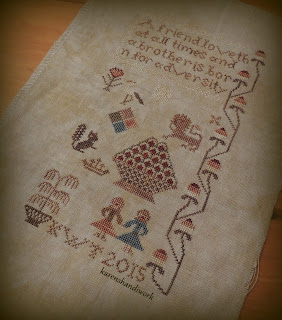 A friend loveth
at all times and
a brother is bor
n for adversity
KWT 2015
karenshandiwork